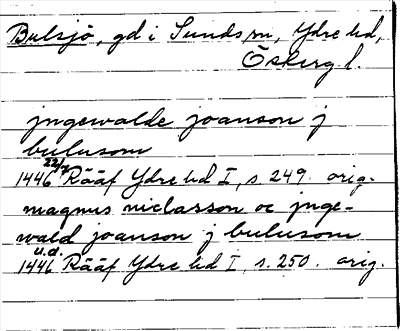 Bulsjö, gd i Sunds sn, Ydre hd,
Östergl.
jngewalde joanson j
bulusom
22/7
1446 Rääf Ydre hd I, s. 249. orig.
magnus niclasson oc jnge-
wald joanson j bulusom
u.d.
1446 Rääf Ydre hd I, s. 250. orig.